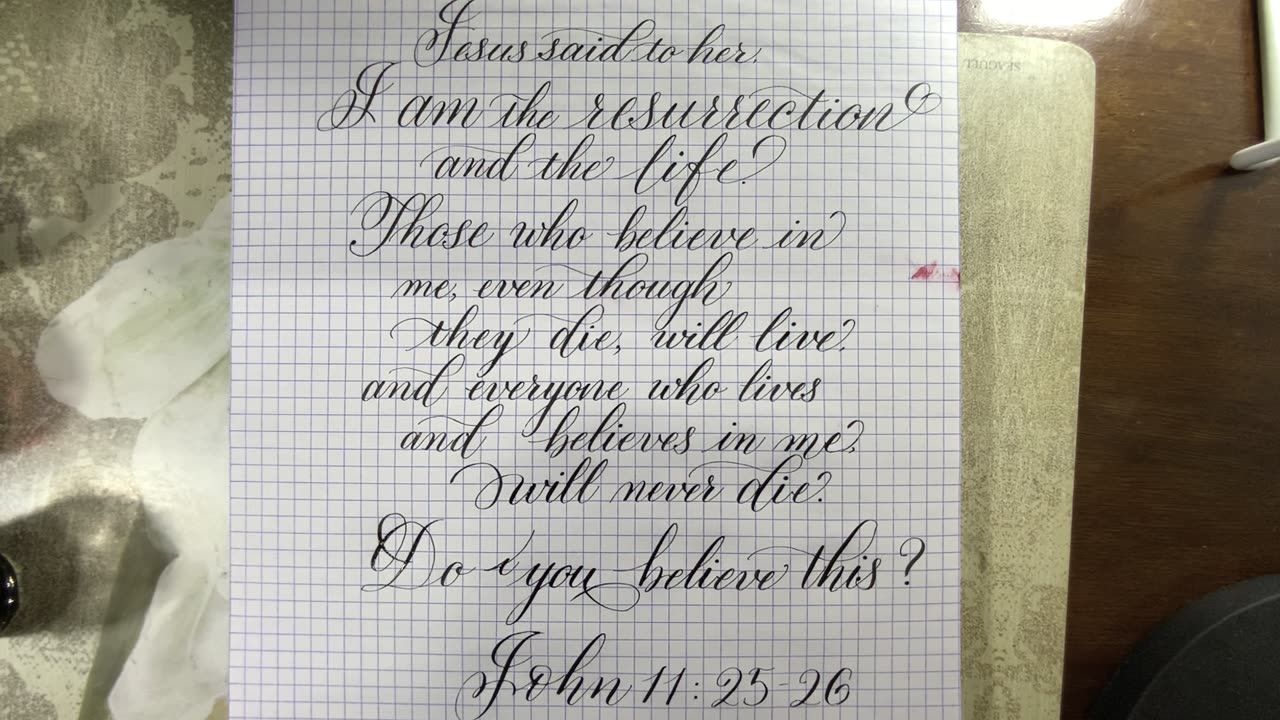 Jesus said to her.
I am the resurrection
and the life.
Those who believe in
me, even though
they die, will live.
and everyone who lives
and believes in me,
will never die.
Do you believe this?
John 11:25-26
SEAGULL